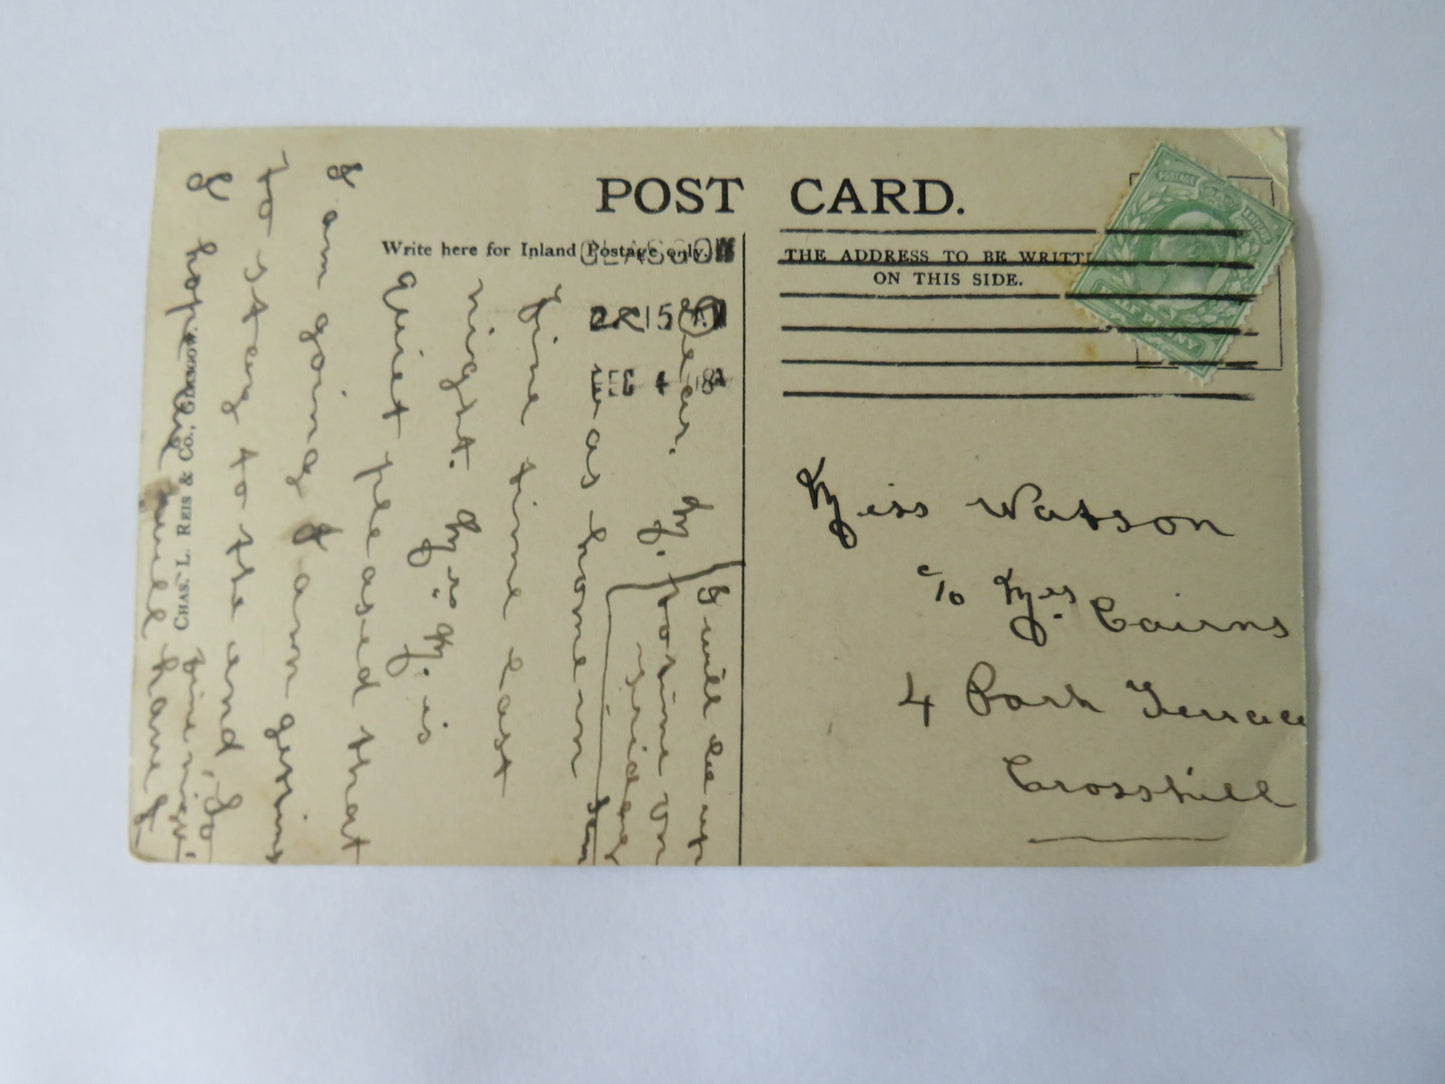 POST CARD.
Write here for Inland Postage only.
THE ADDRESS TO BE WRITTE
ON THIS SIDE.
GLASGOW
2R 15
DEC 4 08
HALFPENNY
CHAS. L. REIS & CO., GLASGOW.
Miss Watson
c/o Mrs Cairns
4 Park Terrace
Crosshill
Dear. M.
I was home in
fine time last
night. Mrs. M. is
quiet pleased that
I am going I am getting
to stay to the end, So
I hope we will have
fine
I will see up
on
Friday